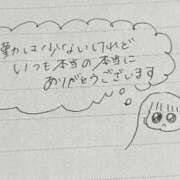 勤しは少ないけれど
いつも本当の本当に
ありがとうございます